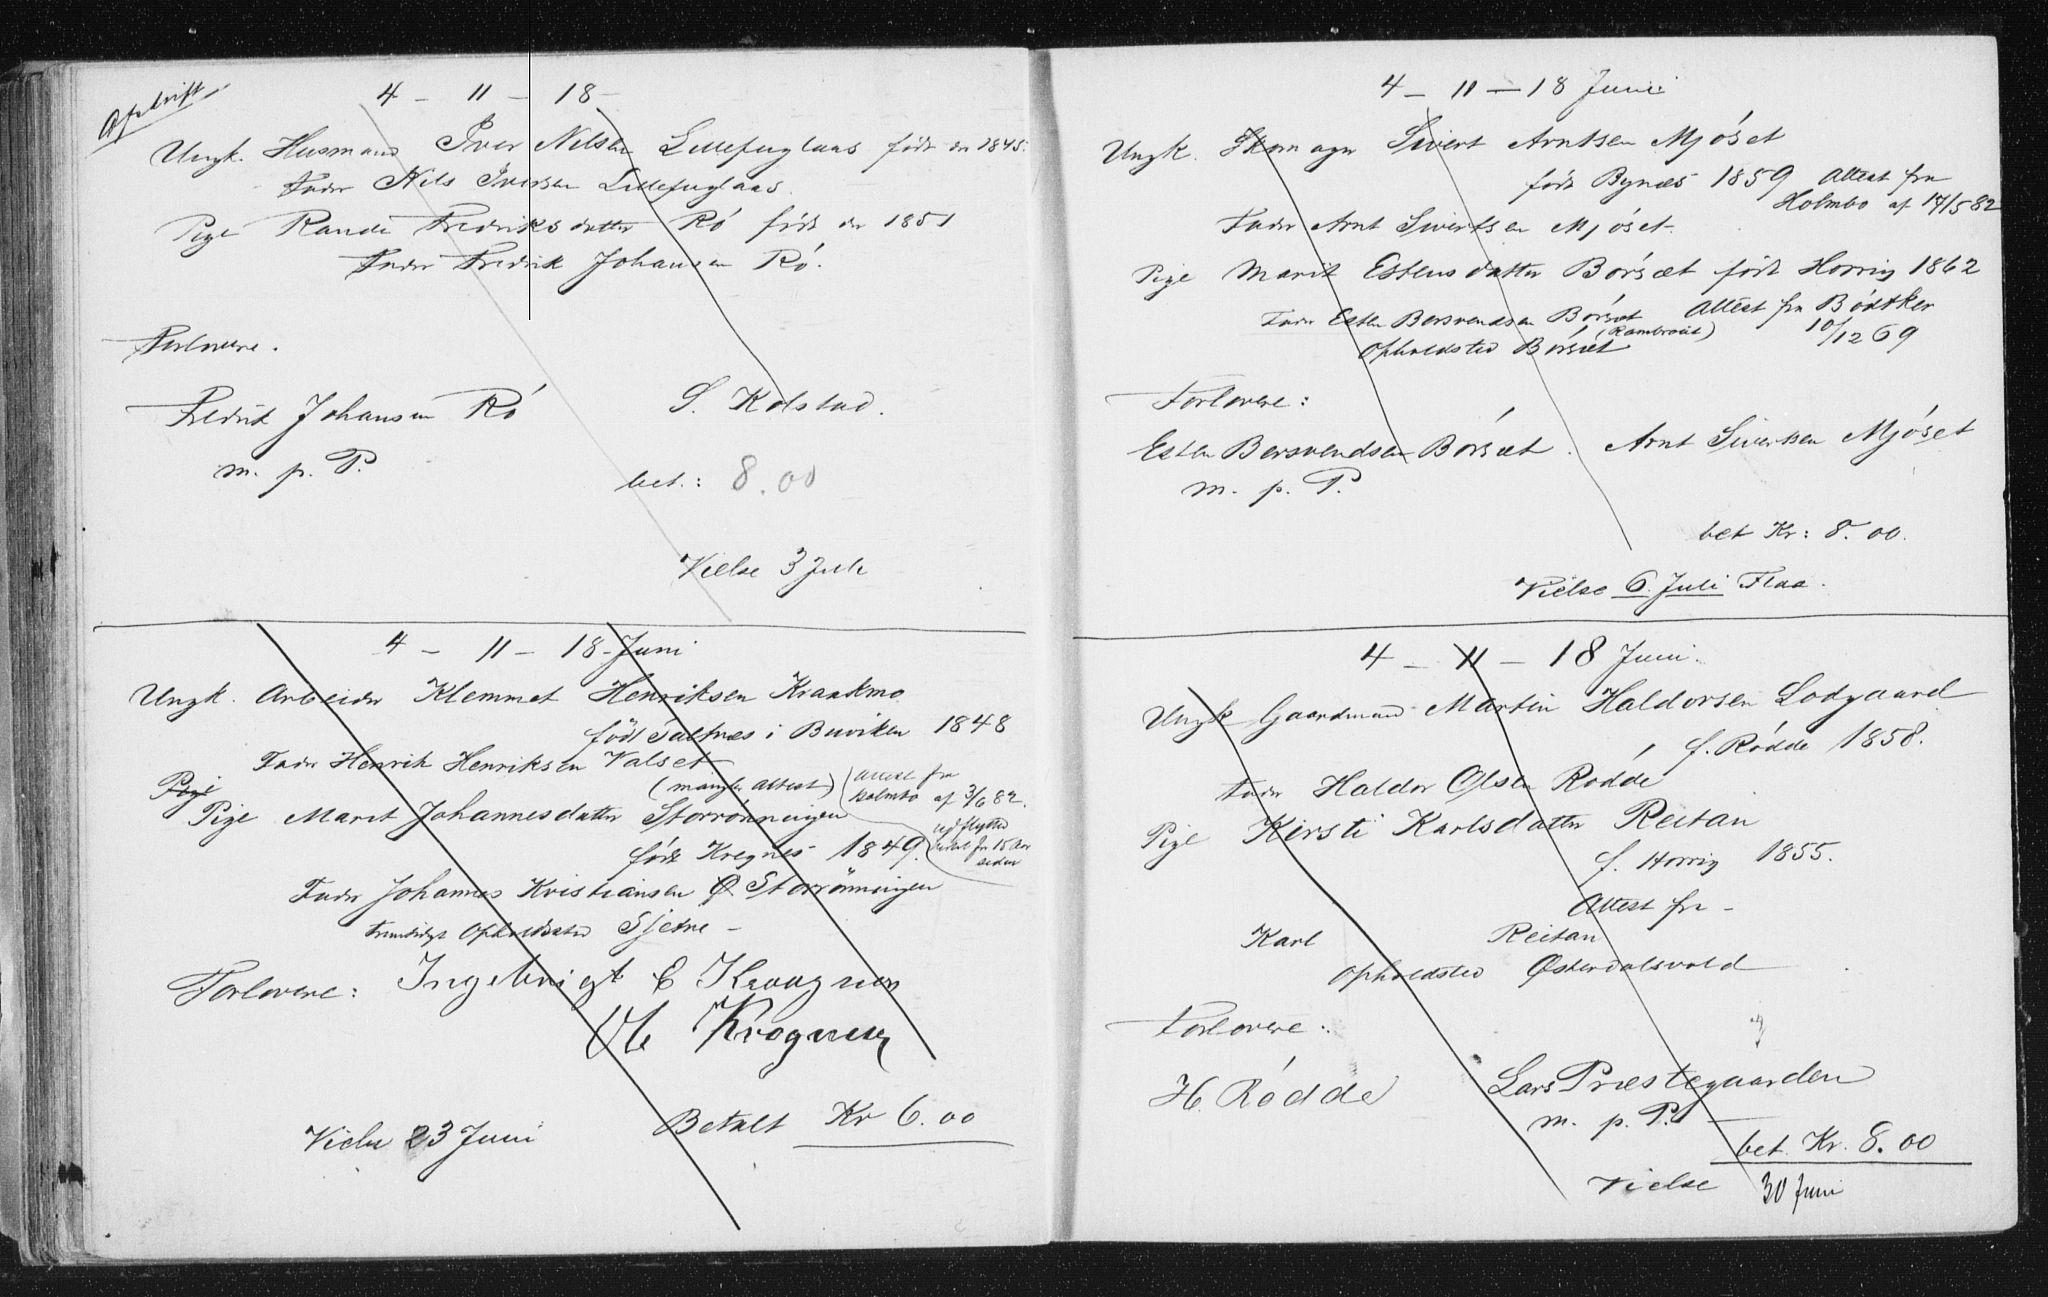 Afskrift
4 - 11 - 18
Ungk. Husmand Iver Nilsen Lillefuglaas født der 1845.
Fader Nils Iversen Lillefuglaas.
Pige Randi Fredriksdatter Rö född der 1851
Fader Fredrik Johansen Rö.
Forlovere.
Fredrik Johansen Rö S. Kolstad.
m. p. P.
bet.: 8.00
Vielse 3 Juli
4 - 11 - 18 - Juni
Ungk. Arbeider Klemmet Henriksen Kraakmo
født Saltnes i Buviken 1848
Fader Henrik Henriksen Valset
(mangler Attest) Attest fra
Holmbo af 3/6 82.
Pige
Pige Marit Johannesdatter Storrönningen
udflyttet
fra 15 Aar
siden
født Kregnes 1849.
Fader Johannes Kristiansen Storrönningen
Opholdssted Sjetne -
Forlovere: Ingebrigt E Kraagnes
Ole Krognes
Vielse 23 Juni Betalt Kr 6.00
4 - 11 - 18 Juni
Ungk. Skomager Sivert Arntsen Mjöset
født Bynæs 1859 Attest fra
Holmbo af 17/5 82
Fader Arnt Sivertsen Mjöset.
Pige Marit Estensdatter Börsæt født Horrig 1862
Fader Esten Bersvendsen Börsæt Attest fra Bödtker
10/12 69
Opholdsted Börsæt
Forlovere:
Esten Bersvendsen Börsæt. Arnt Sivertsen Mjöset
m. p. P.
bet Kr: 8.00.
Vielse 6. Juli Flaa.
4 - 11 - 18 Juni.
Ungk Gaardmand Martin Haldorsen Lodgaard
f. Rödde 1858.
Fader Haldor Olsen Rödde
Pige Kirsti Karlsdatter Reitan
f. Horrig 1855.
Attest fra -
Karl Reitan
Opholdsted Østerdalsvold
Forlovere:
H. Rödde Lars Præstegaarden
m. p. P. -
bet. Kr. 8.00
Vielse 30 Juni